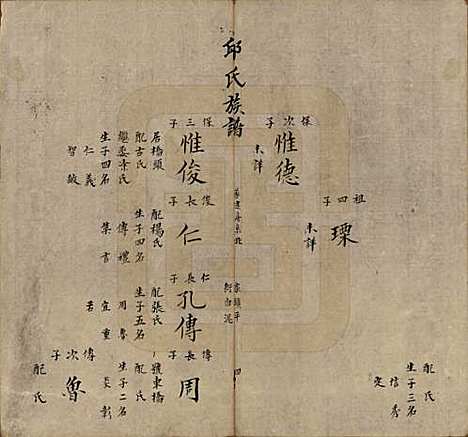 邱氏族譜
配氏
生子三名
信 秀
祖四子
瑮
未詳
保次子
惟德
未詳
四
保三子
惟俊
居橋頭
配古氏
繼娶宋氏
生子四名
仁 義
智 敏
俊長子
仁
配楊氏
生子四名
傳 禮
榮 言
仁長子
孔傳
配張氏
生子五名
周 魯
宜 重
若
傳長子
周
號東橋
配氏
生子二名
炎 彰
傳次子
魯
配氏